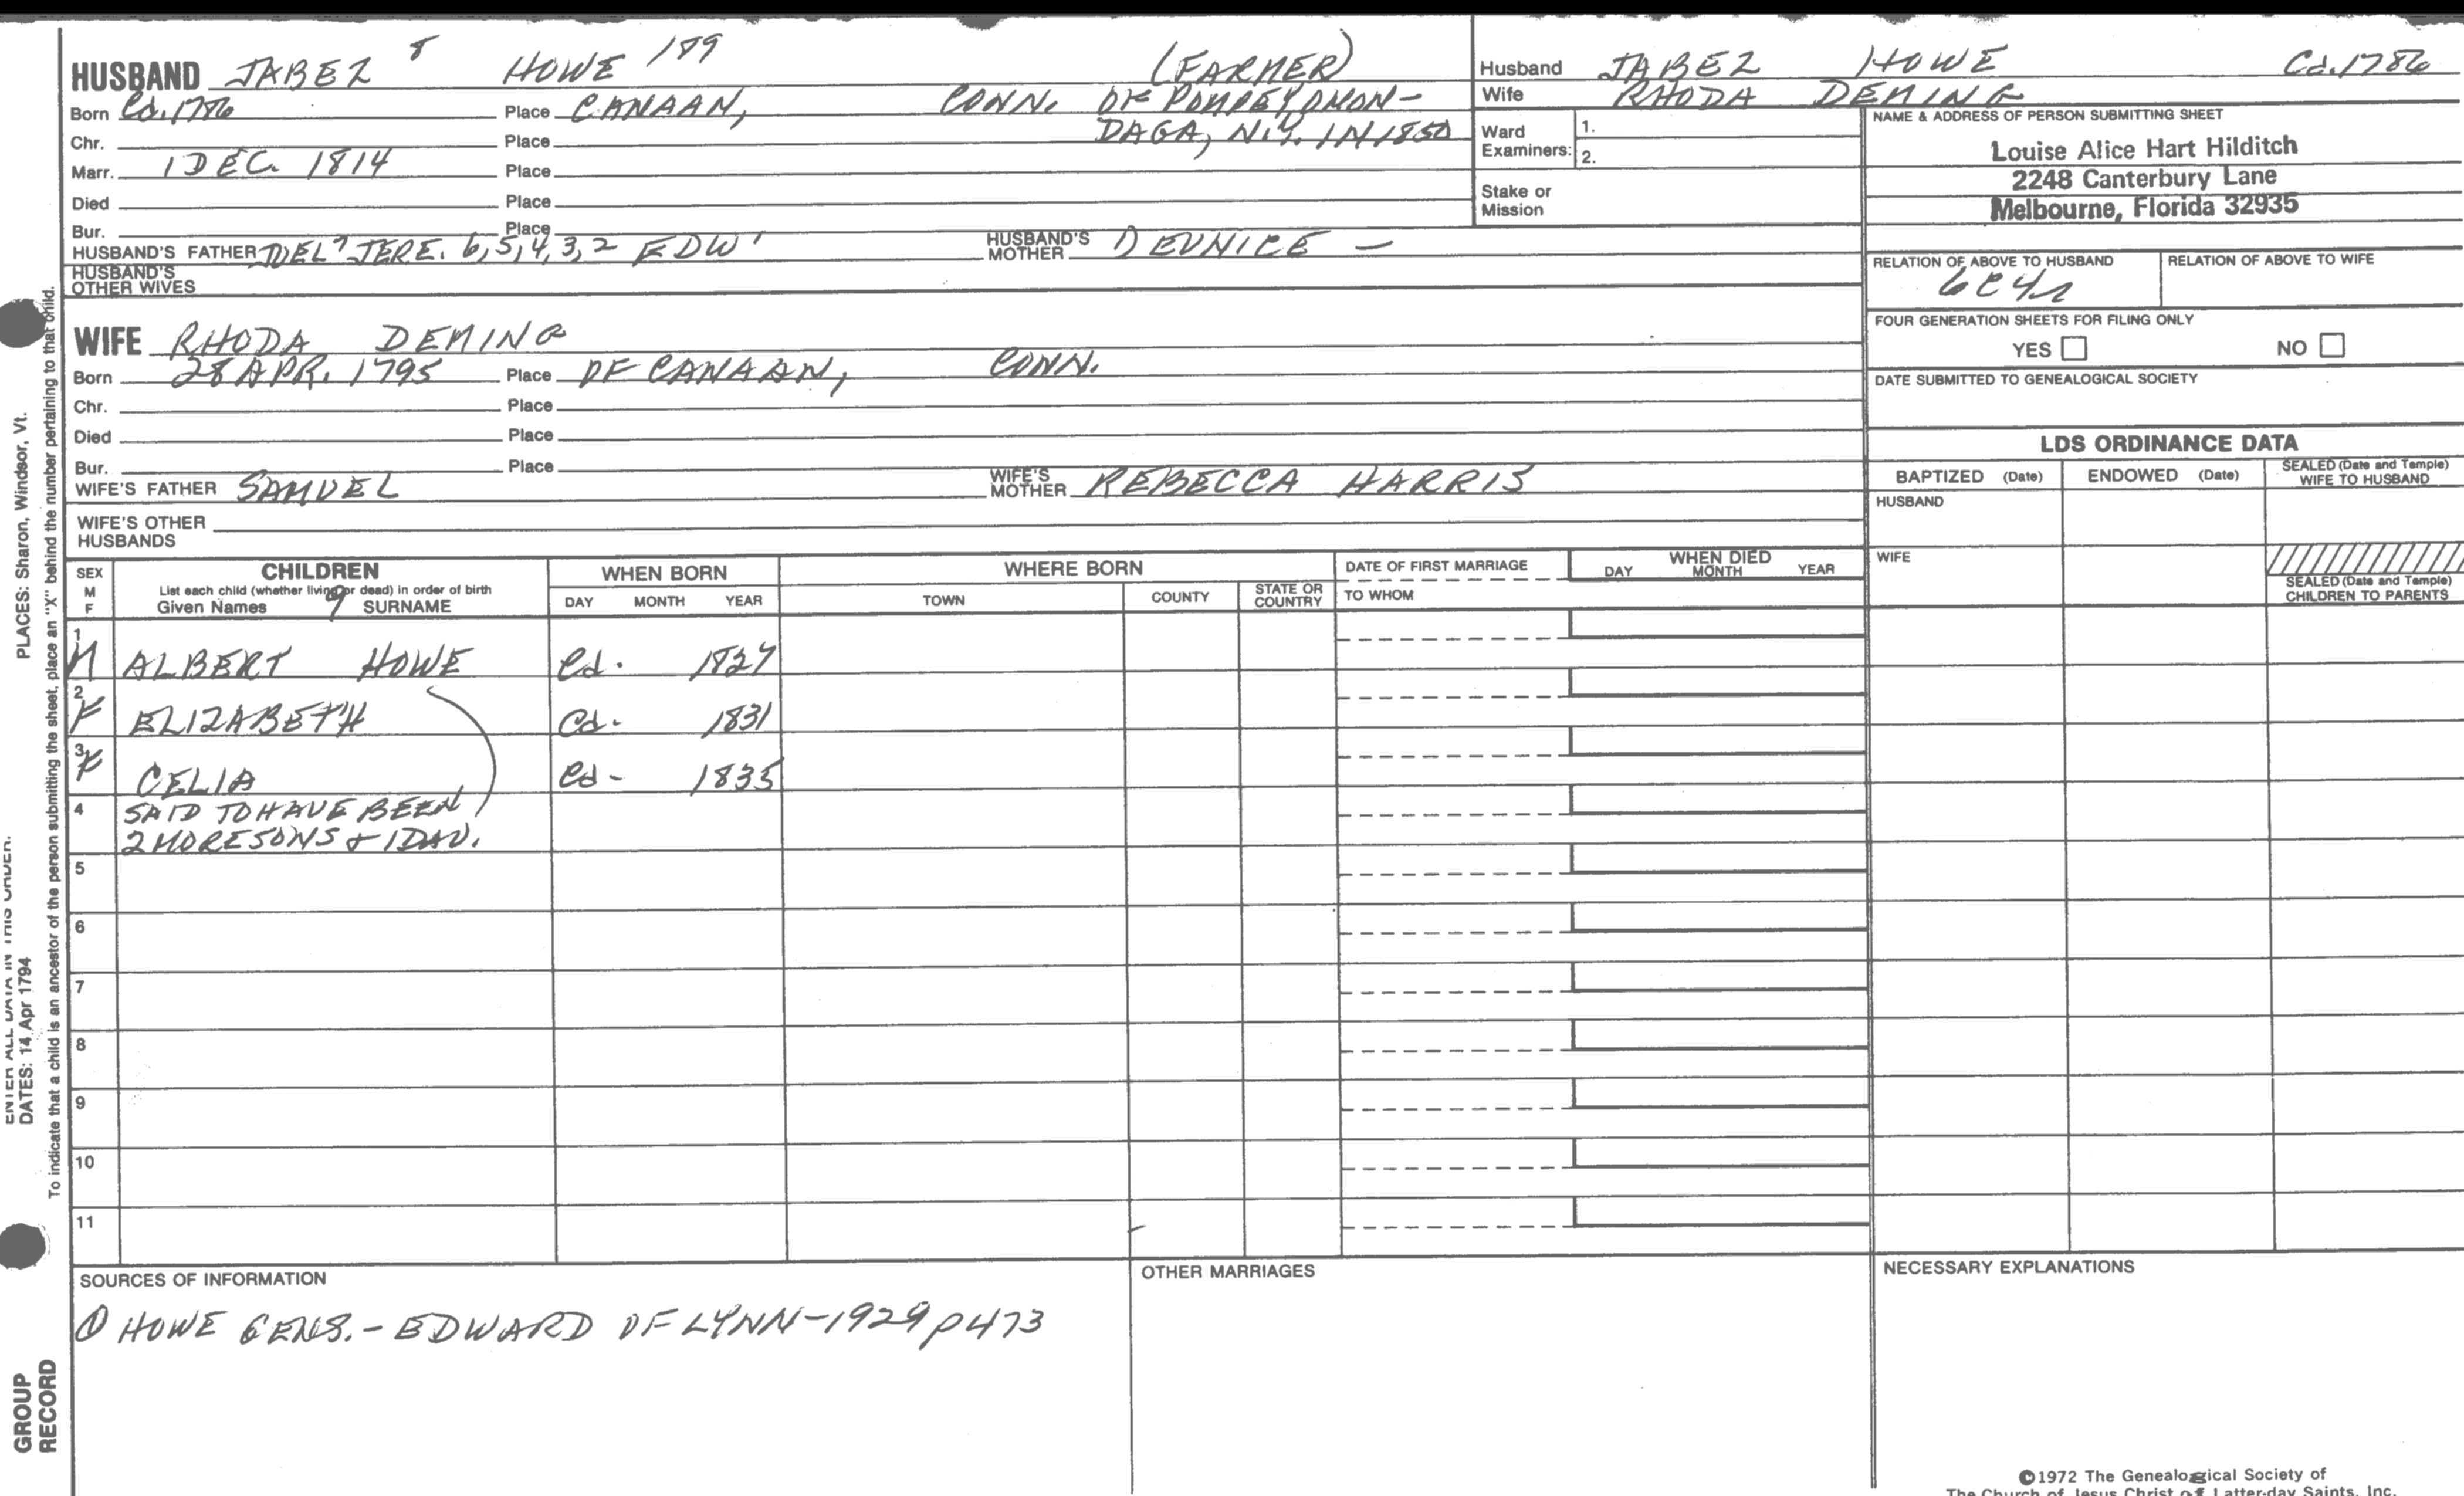 HUSBAND JABEZ 8 HOWE 189 (FARMER)
Born Ca. 1786 Place CANAAN, CONN. OF POMPEY, ONON-
DAGA, N.Y. IN 1850
Chr. Place
Marr. 1 DEC. 1814 Place
Died Place
Bur. Place
HUSBAND'S FATHER JOEL 7 JERE. 6, 5, 4, 3, 2 EDW 1 HUSBAND'S MOTHER ① EUNICE —
HUSBAND'S OTHER WIVES
WIFE RHODA DEMING
Born 28 APR. 1795 Place OF CANAAN, CONN.
Chr. Place
Died Place
Bur. Place
WIFE'S FATHER SAMUEL WIFE'S MOTHER REBECCA HARRIS
WIFE'S OTHER HUSBANDS
Husband JABEZ HOWE Ca. 1786
Wife RHODA DEMING
Ward Examiners: 1.
2.
Stake or Mission
NAME & ADDRESS OF PERSON SUBMITTING SHEET
Louise Alice Hart Hilditch
2248 Canterbury Lane
Melbourne, Florida 32935
RELATION OF ABOVE TO HUSBAND RELATION OF ABOVE TO WIFE
6C4R
FOUR GENERATION SHEETS FOR FILING ONLY
YES NO
DATE SUBMITTED TO GENEALOGICAL SOCIETY
LDS ORDINANCE DATA
BAPTIZED (Date) ENDOWED (Date) SEALED (Date and Temple) WIFE TO HUSBAND
HUSBAND
WIFE
SEALED (Date and Temple)
CHILDREN TO PARENTS
SEX M F
CHILDREN
List each child (whether living or dead) in order of birth
Given Names 9 SURNAME
WHEN BORN
DAY MONTH YEAR
WHERE BORN
TOWN COUNTY STATE OR COUNTRY
DATE OF FIRST MARRIAGE
TO WHOM
WHEN DIED
DAY MONTH YEAR
1 M ALBERT HOWE Ca. 1827
2 F ELIZABETH Ca. 1831
3 F CELIA Ca. 1835
4 SAID TO HAVE BEEN
2 MORE SONS + 1 DAU.
5
6
7
8
9
10
11
SOURCES OF INFORMATION
① HOWE GENS. - EDWARD OF LYNN - 1929 p473
OTHER MARRIAGES
NECESSARY EXPLANATIONS
©1972 The Genealogical Society of
The Church of Jesus Christ of Latter-day Saints, Inc.
ENTER ALL DATA IN THIS ORDER:
DATES: 14 Apr 1794
PLACES: Sharon, Windsor, Vt.
To indicate that a child is an ancestor of the person submitting the sheet, place an "X" behind the number pertaining to that child.
GROUP
RECORD